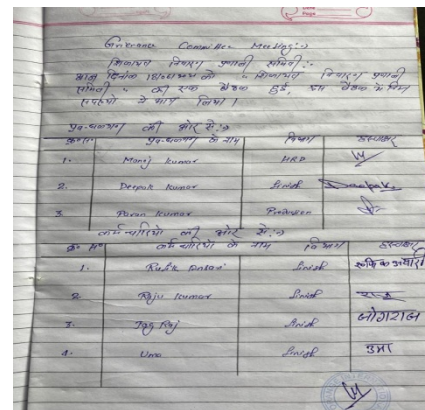 Grievance Committee Meeting :-)
शिकायत निवारण प्रणाली समिति :-
आज दिनांक को " शिकायत निवारण प्रणाली
समिति " की एक बैठक हुई, इस बैठक मे निम्न
सदस्यो ने भाग लिया।
प्रबन्धकगण की ओर से :-)
क्र० स० प्रबन्धकगण के नाम विभाग हस्ताक्षर
1. Manoj Kumar HRD
2. Deepak Kumar Finish Deepak
3. Pavan Kumar Production
कर्मचारियो की ओर से :-)
क्र० स० कर्मचारियो के नाम विभाग हस्ताक्षर
1. Rafik Ansari Finish रफिक अंसारी
2. Raju Kumar Finish राजू
3. Jog Raj Finish जोगराज
4. Uma Finish उमा